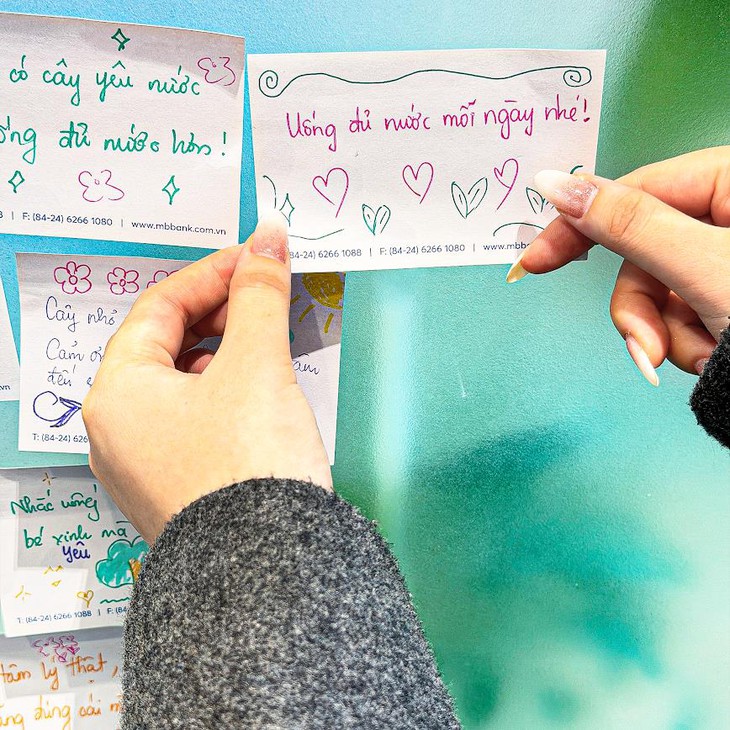 có cây yêu nước
đủ nước hơn!
8 | F: (84-24) 6266 1080 | www.mbbank.com.vn
Uống đủ nước mỗi ngày nhé!
(84-24) 6266 1088 | F: (84-24) 6266 1080 | www.mb
Cây nhỏ
Cảm ơn
đến
T: (84-24) 626
Nhắc uống
bé xinh mà
yêu
T: (84-24) 6266 1088 | F: (84
tâm lý thật,
đúng cái